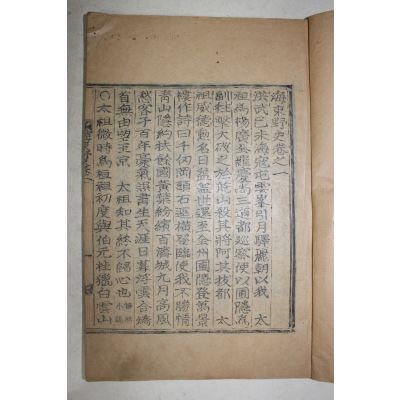 海東野史卷之一
洪武己未海寇屯雲峯引月驛麗朝以我 太
祖為楊廣全羅慶尚三道都巡察使以圃隱為
副往擊大破之於荒山殺其將阿其拔都 太
祖威德勳名日盛蓋世還至全州圃隱登萬景
樓作詩曰千仞岡頭石逕橫登臨使我不勝情
靑山隱約扶餘國黃葉紛繽百濟城九月高風
愁客子百年豪氣誤書生天涯日暮浮雲合矯
首無由望玉京 太祖知其終不歸心也
○太祖微時為桓祖初度與伯元桂獵白雲山